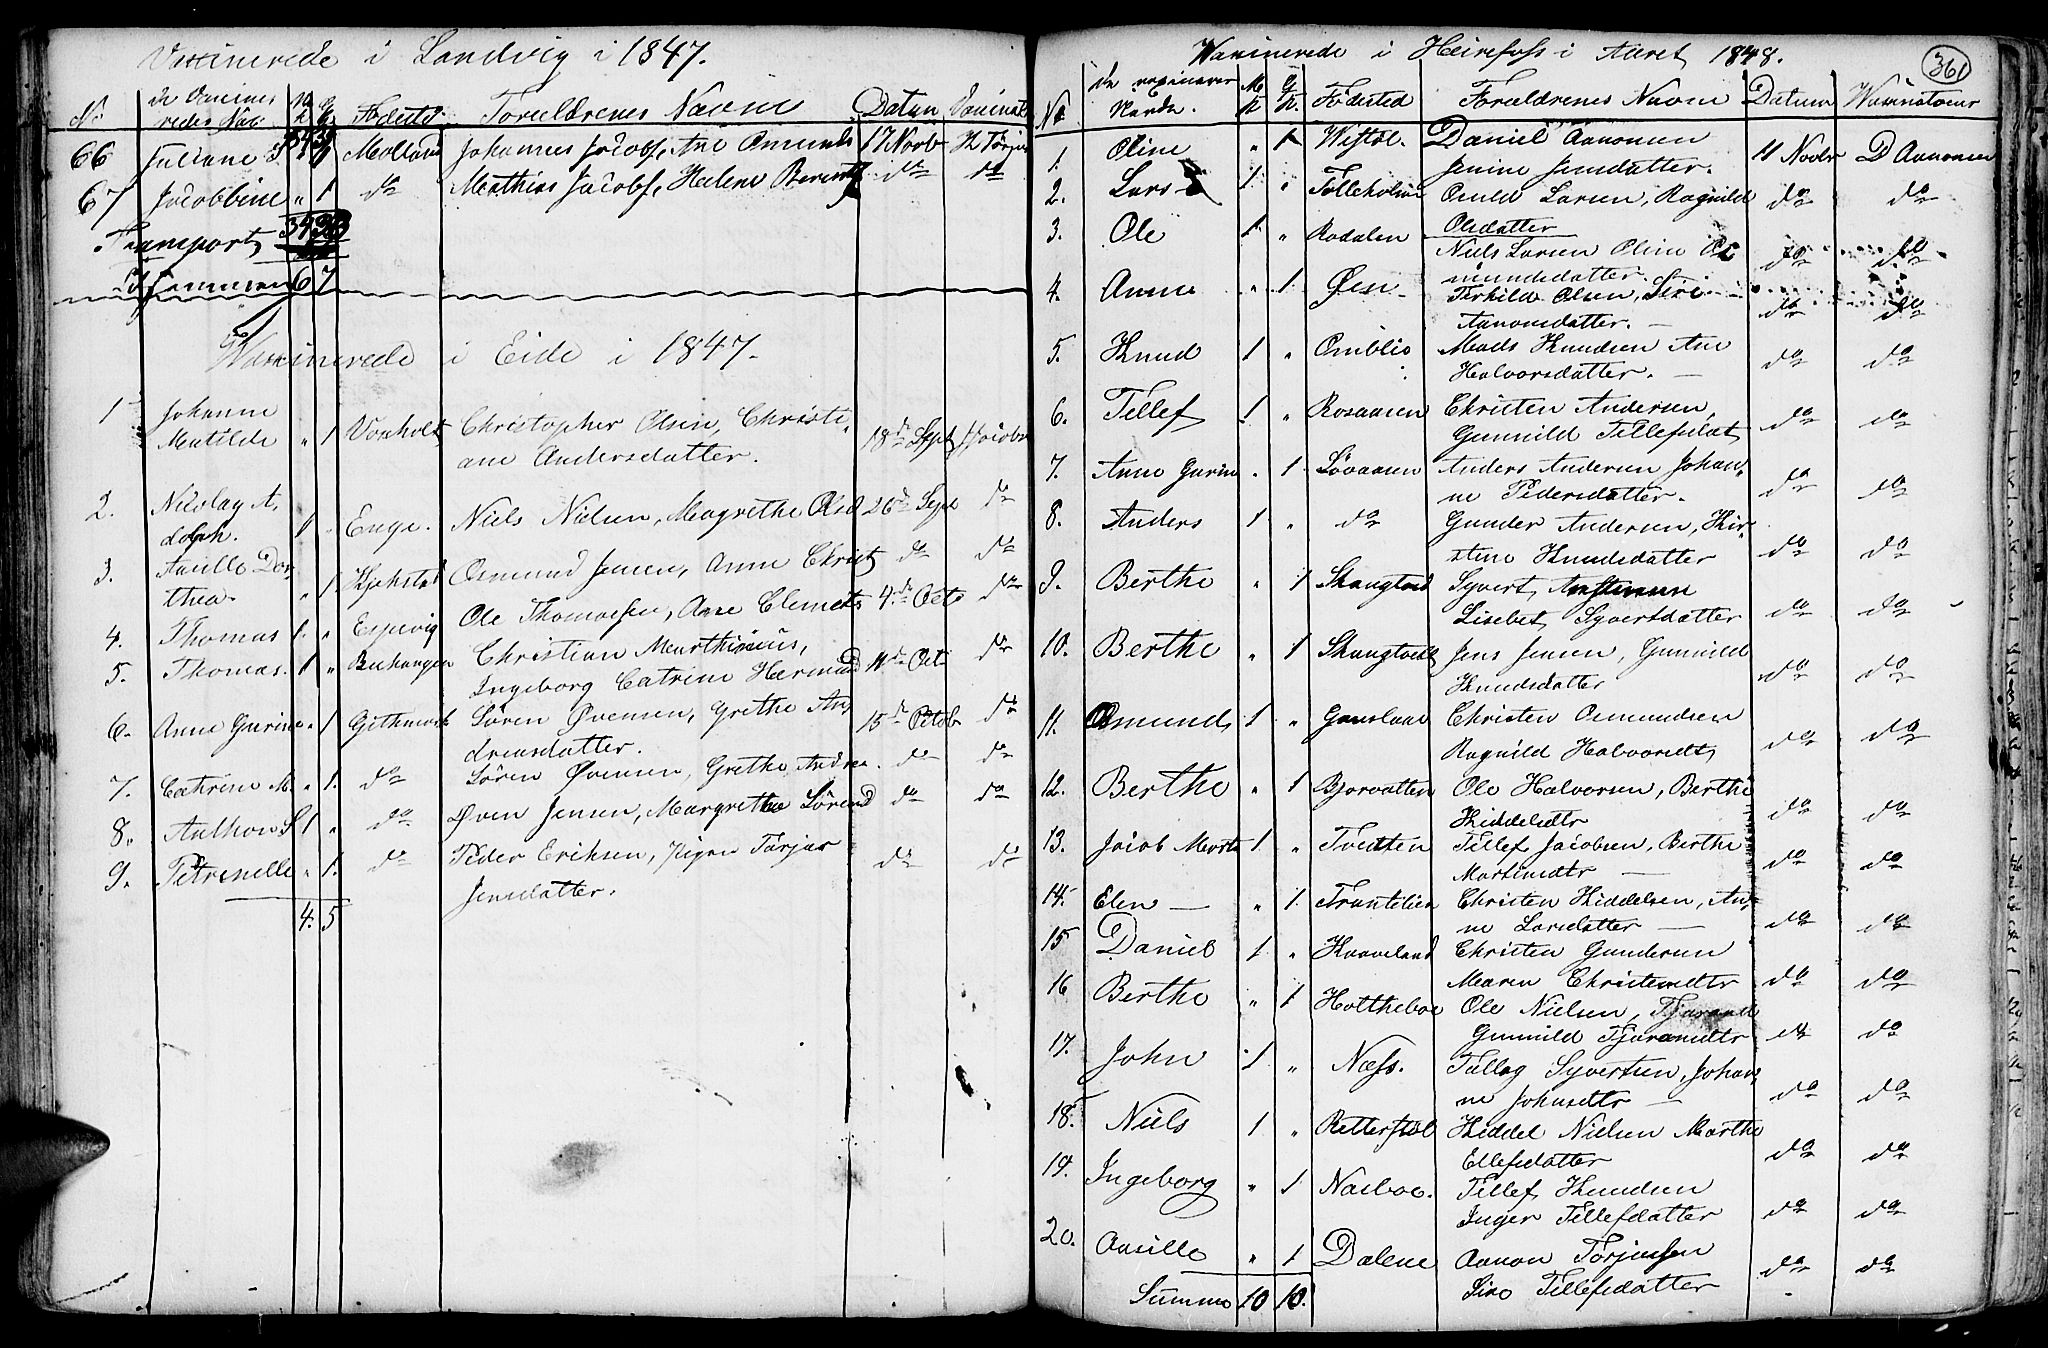 Vaxinerede i Landvig i 1847.
No de Vaxineredes Nav. M.k. Q.k. Fødested. Forældrenes Navne Datum Vaxinat
66 Juliane Molland Johannes Jacobs, Ane Omunds 17 Novb
67 Jacobbine " 1 do Mathias Jacobs, Helene Berents do do
Transport
Summen 67
Vaxinerede i Eide i 1847.
1 Johanne
Matilde " 1 Vonholt Christopher Olsen, Christi-
ane Andersdatter. 18de Sept Jacobs
2. Nicolay A-
dolph. 1 " Enge. Niels Nielsen, Magrethe Olsd 26de Sept do
3. Aasille Dor-
thea. " 1 Osmund Jensen, Anne Christ do do
4. Thomas 1. " Espevig Ole Thomassen, Ane Clemets 4de Oct do
5. Thomas. 1 " Christian Marthinius,
Ingeborg Catrine Hermand 11de Oct do
6. Anne Gurine " 1 Githmark Søren Øvensen, Grethe An-
dreasdatter. 15de Octob do
7. Cathrine M. " 1. do Søren Øvensen, Grethe Andrea. do do
8. Anthon S 1 " do Øven Jensen, Margrethe Sørend do do
9. Petrenelle " 1. do Peder Eriksen, Torjus
Jensdatter. do do
4. 5
361
Vaxinerede i Heirefoss i Aaret 1848.
No de vaxinerer Navne. M.k. Q.k. Fødested Forældrenes Navne Datum Vaxinateur
1. Oline " 1 Wistøl. Daniel Aanonsen
Jenine Jensdatter. 11 Novbr D Aanonsen
2. Lars 1 " Tolleholmen Omund Larsen, Ragnild
Olsdatter do do
3. Ole 1 " Rodalen Niels Larsen Oline Os
mundsdatter. do do
4. Anne " 1 Øen Terkild Olsen, Siri
Aanonsdatter. do do
5. Knud 1 " Omblie Mads Knudsen Ane
Halvorsdatter. do do
6. Tellef 1 " Rosaasen Christen Andersen,
Gunnild Tellefsdat do do
7. Anne Gurine " 1 Løvaasen Anders Andersen Johan-
ne Pedersdatter. do do
8. Anders 1 " do Gunder Andersen, Kir-
stine Knudsdatter do do
9. Berthe " 1 Skangtvedt Syvert
Lisebet Syvertsdatter do do
10. Berthe " 1 Skangtvedt Jens Jensen, Gunnild
Knudsdatter do do
11. Osmund 1 " Christen Osmundsen
Ragnild Halvorsdt do do
12. Berthe " 1 Bjorvatten Ole Halvorsen, Berthe
Kiddelsdtr do do
13. Jacob Marti 1 " Tvedten Tellef Jacobsen, Berthe
Martinsdtr do do
14. Elen " 1. Trontelien Christen Kiddelsen, An-
ne Larsdatter do do
15 Daniel 1 " Kraveland Christen Gundersen
Maren Christensdtr do do
16 Berthe " 1 Holtheboe Ole Nielsen,
Gunnild Tjørandsdtr do do
17. John 1 " Næss. Tallag Syvertsen, Johan-
ne Johnsdtr do do
18. Niels 1 " Retterstøl Kiddel Nielsen Marthe
Ellefsdatter do do
19. Ingeborg " 1 Naeboe. Tellef Knudsen
Inger Tellefdatter do do
20. Aasille " 1 Dalene Aanon Torjussen
Siro Tellefsdatter do do
Summa 10 10.